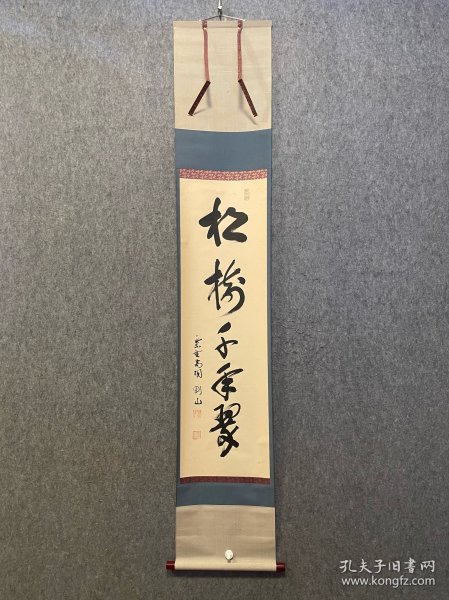 松樹千年翠
紫野高桐 剛山
孔夫子旧书网
www.kongfz.com